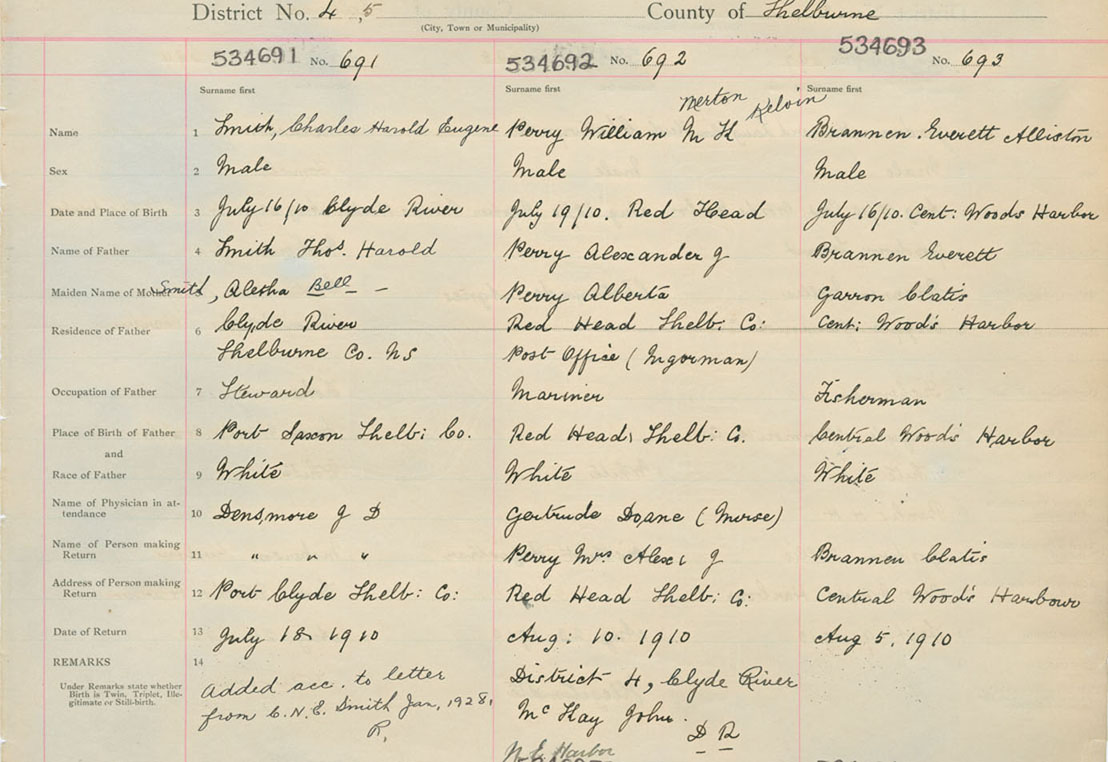 District No. 4, 5 County of Shelburne
(City, Town or Municipality)
534691 No. 691 534692 No. 692 534693 No. 693
Surname first Surname first Surname first
Merton Kelvin
Name 1 Smith, Charles Harold Eugene Perry William M K Brannen. Everett Alliston
Sex 2 Male Male Male
Date and Place of Birth 3 July 16/10 Clyde River July 19/10. Red Head July 16/10. Cent: Woods Harbor
Name of Father 4 Smith Thos. Harold Perry Alexander J Brannen Everett
Maiden Name of Mother 5 Smith, Aletha Bell - Perry Alberta Garron Clatis
Residence of Father 6 Clyde River Red Head Shelb: Co: Cent: Wood's Harbor
Shelburne Co. NS Post Office (Ingorman)
Occupation of Father 7 Steward Mariner Fisherman
Place of Birth of Father 8 Port Saxon Shelb: Co. Red Head, Shelb: Co. Central Wood's Harbor
and
Race of Father 9 White White White
Name of Physician in at-
tendance 10 Densmore J D Gertrude Doane (Nurse)
Name of Person making
Return 11 " " " Perry Mrs Alex: J Brannen Clatis
Address of Person making
Return 12 Port Clyde Shelb: Co: Red Head Shelb: Co: Central Wood's Harbour
Date of Return 13 July 18 1910 Aug: 10. 1910 Aug 5, 1910
REMARKS 14
Under Remarks state whether
Birth is Twin, Triplet, Ille-
gitimate or Still-birth.
Added acc. to letter District 4, Clyde River
from C.N.E. Smith Jan, 1928, Mc Kay John.
R. D R
N. E. Harbor